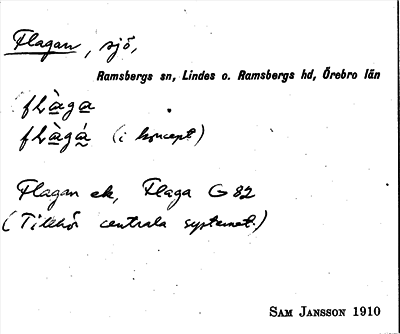 Flagan, sjö,
Ramsbergs sn, Lindes o. Ramsbergs hd, Örebro län
flàga
flàgá (i koncept)
Flagan ek, Flaga G 82
(Tillhör centrala systemet.)
Sam Jansson 1910